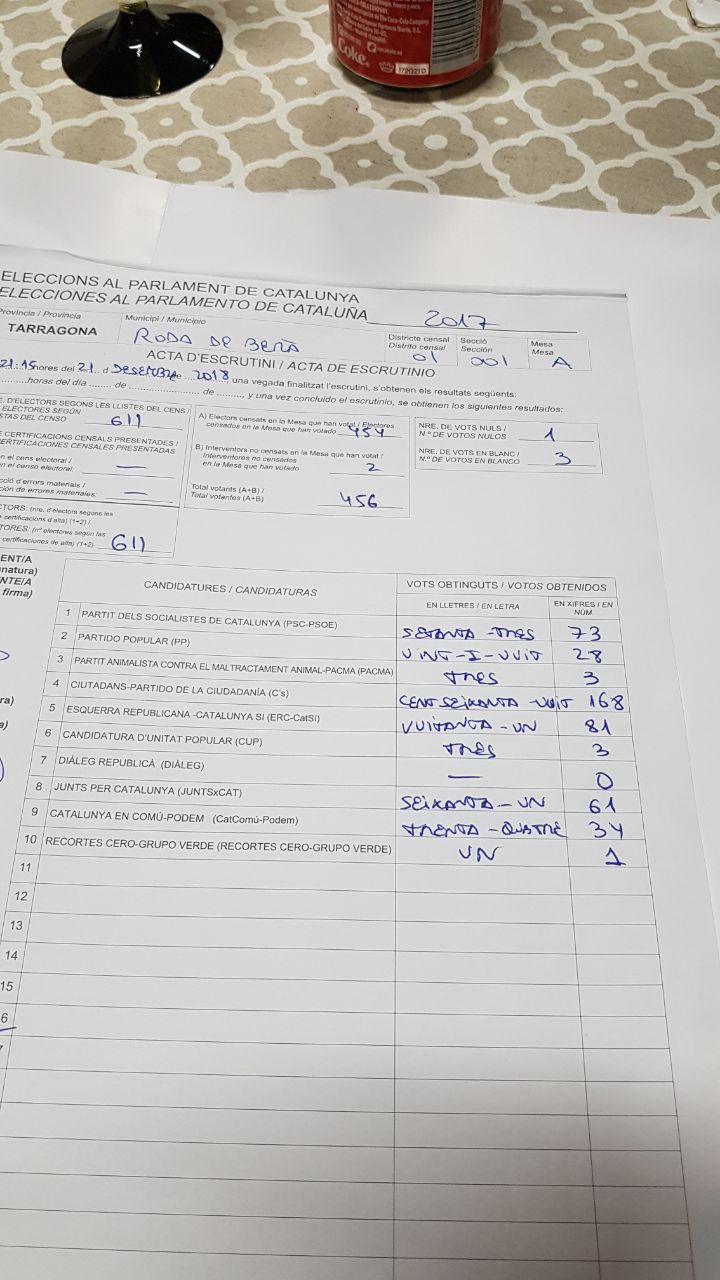 Coke
172021D
ELECCIONS AL PARLAMENT DE CATALUNYA
ELECCIONES AL PARLAMENTO DE CATALUÑA 2017
Provincia / Provincia
TARRAGONA
Municipi / Municipio
RODA DE BERÀ
Districte censal
Distrito censal
01
Secció
Sección
001
Mesa
Mesa
A
ACTA D'ESCRUTINI / ACTA DE ESCRUTINIO
21:15 hores del 21 d DESEMBRE 2018 una vegada finalitzat l'escrutini, s'obtenen els resultats següents:
horas del día ........ de ........ de ........, y una vez concluido el escrutinio, se obtienen los siguientes resultados:
. D'ELECTORS SEGONS LES LLISTES DEL CENS /
ELECTORES SEGÚN
STAS DEL CENSO 611
CERTIFICACIONS CENSALS PRESENTADES /
ERTIFICACIONES CENSALES PRESENTADAS
n el cens electoral /
n el censo electoral: —
cció d'errors materials /
ción de errores materiales: —
CTORS: (nre. d'electors segons les
certificacions d'alta) (1+2) /
TORES: (nº electores según las
certificaciones de alta) (1+2) 611
A) Electors censats en la Mesa que han votat / Electores
censados en la Mesa que han votado 454
B) Interventors no censats en la Mesa que han votat /
Interventores no censados
en la Mesa que han votado 2
Total votants (A+B) /
Total votantes (A+B) 456
NRE. DE VOTS NULS /
N.º DE VOTOS NULOS 1
NRE. DE VOTS EN BLANC /
N.º DE VOTOS EN BLANCO 3
ENT/A
natura)
NTE/A
firma)
CANDIDATURES / CANDIDATURAS
VOTS OBTINGUTS / VOTOS OBTENIDOS
EN LLETRES / EN LETRA
EN XIFRES / EN NÚM.
1 PARTIT DELS SOCIALISTES DE CATALUNYA (PSC-PSOE) SETANTA-TRES 73
2 PARTIDO POPULAR (PP) VINT-I-VUIT 28
3 PARTIT ANIMALISTA CONTRA EL MALTRACTAMENT ANIMAL-PACMA (PACMA) TRES 3
4 CIUTADANS-PARTIDO DE LA CIUDADANÍA (C's) CENT SEIXANTA-VUIT 168
5 ESQUERRA REPUBLICANA -CATALUNYA SI (ERC-CatSí) VUITANTA-UN 81
6 CANDIDATURA D'UNITAT POPULAR (CUP) TRES 3
7 DIÀLEG REPUBLICÀ (DIÀLEG) — 0
8 JUNTS PER CATALUNYA (JUNTSxCAT) SEIXANTA-UN 61
9 CATALUNYA EN COMÚ-PODEM (CatComú-Podem) TRENTA-QUATRE 34
10 RECORTES CERO-GRUPO VERDE (RECORTES CERO-GRUPO VERDE) UN 1
11
12
13
14
15
6